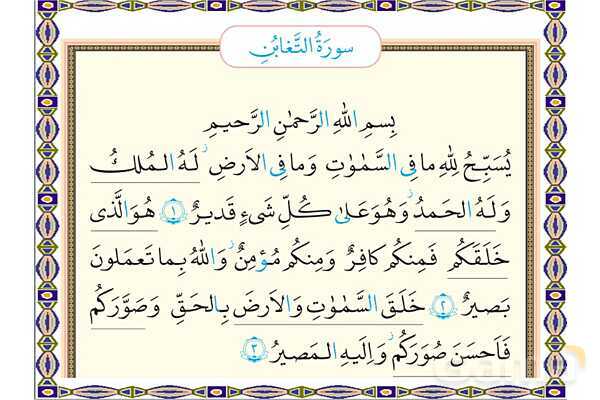 سورَةُ التَّغابُنِ
بِسمِ اللهِ الرَّحمٰنِ الرَّحيمِ
يُسَبِّحُ لِلّٰهِ ما فِی السَّمٰوٰتِ وَ ما فِی الاَرضِ ۖ لَهُ المُلكُ
وَ لَهُ الحَمدُ ۖ وَ هُوَ عَلیٰ كُلِّ شَیءٍ قَدیرٌ ﴿١﴾ هُوَ الَّذی
خَلَقَكُم فَمِنكُم كافِرٌ وَ مِنكُم مُؤمِنٌ ۚ وَ اللهُ بِما تَعمَلونَ
بَصیرٌ ﴿٢﴾ خَلَقَ السَّمٰوٰتِ وَ الاَرضَ بِالحَقِّ وَ صَوَّرَكُم
فَاَحسَنَ صُوَرَكُم ۖ وَ اِلَیهِ المَصیرُ ﴿٣﴾